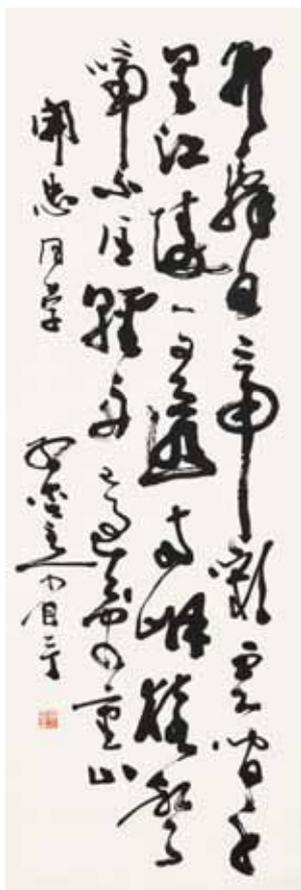 朝辭白帝彩雲間千
里江陵一日還兩岸猿聲
啼不住輕舟已過萬重山
忠同学